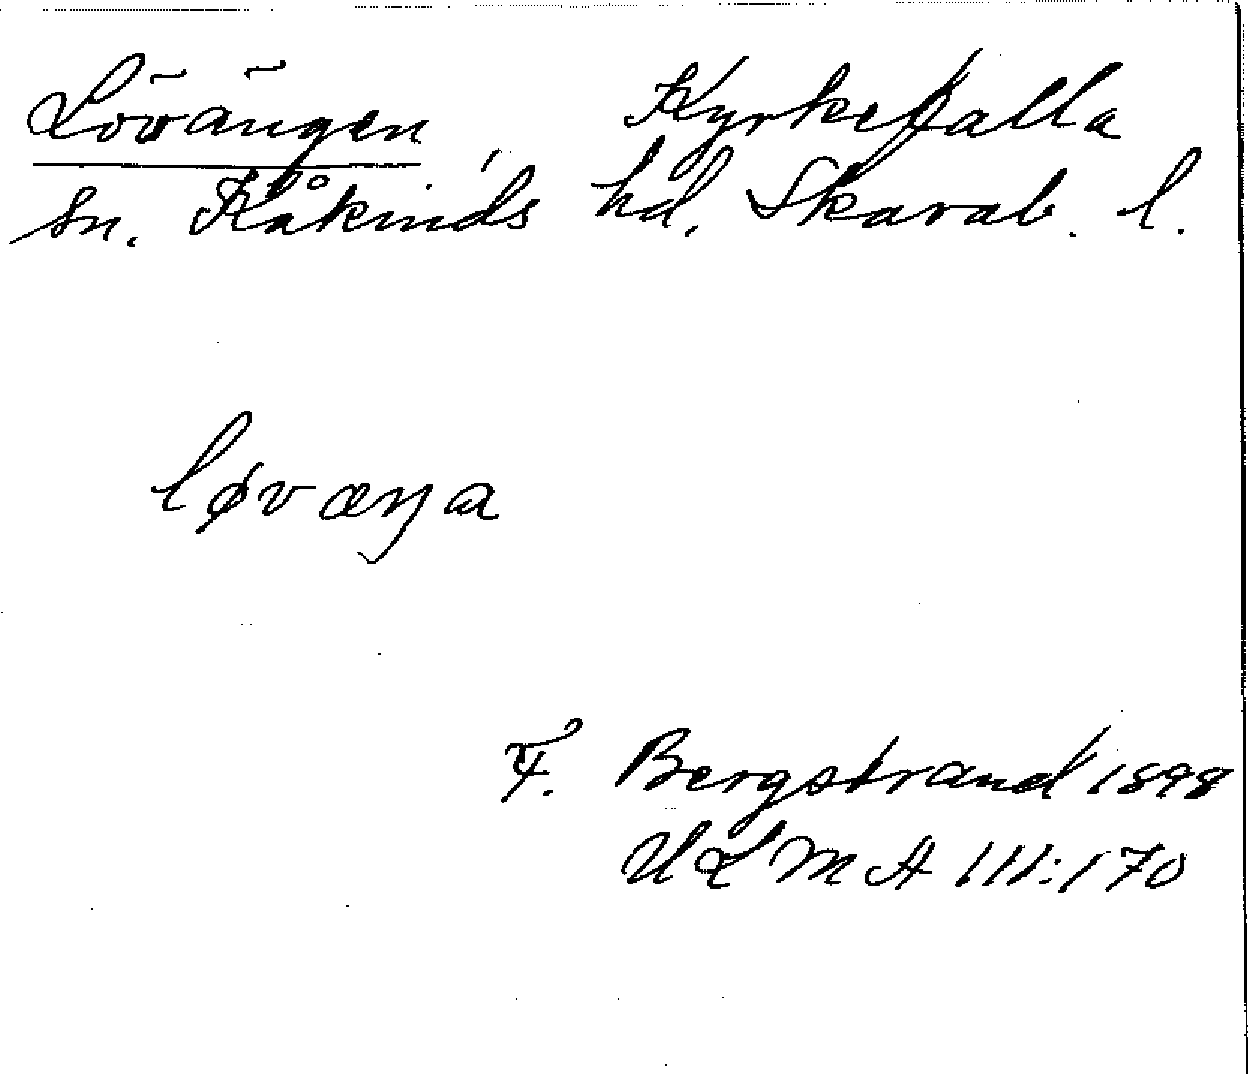 Lövängen, Kyrkefalla
sn. Kåkinds hd. Skarab. l.
løvæŋa
F. Bergstrand 1898
ULMA 111:170